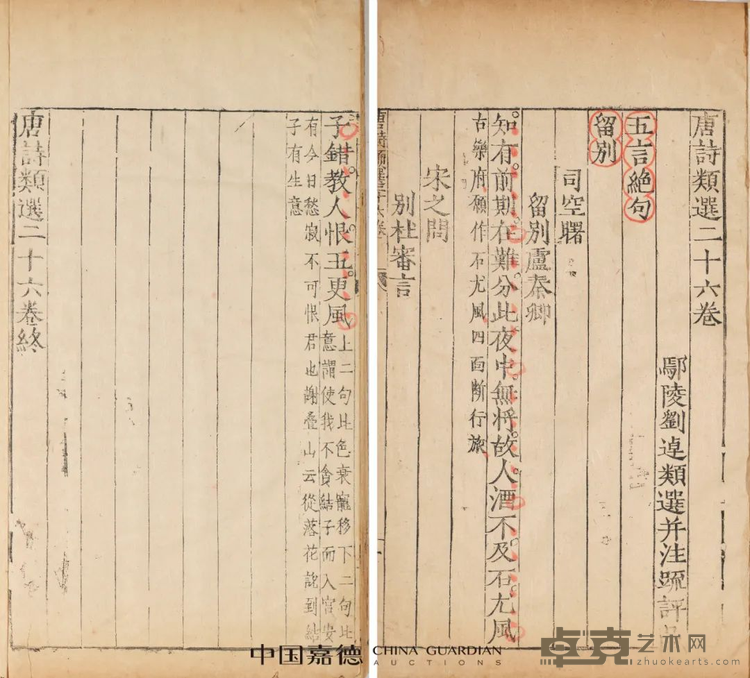 唐詩類選二十六卷
鄢陵劉逴類選并注疏評
五言絕句
留別
司空曙
留別盧秦卿
知有前期在難分此夜中無將故人酒不及石尤風
古樂府願作石尤風四面斷行旅
宋之問
別杜審言
子錯教人恨五更風
上二句比色衰寵移下二句比
意謂使我不貪結子而入宮安
有今日愁寂不可恨君也謝疊山云從落花說到結
子有生意
唐詩類選二十六卷終
中国嘉德 CHINA GUARDIAN AUCTIONS
卓克艺术网
www.zhuokearts.com